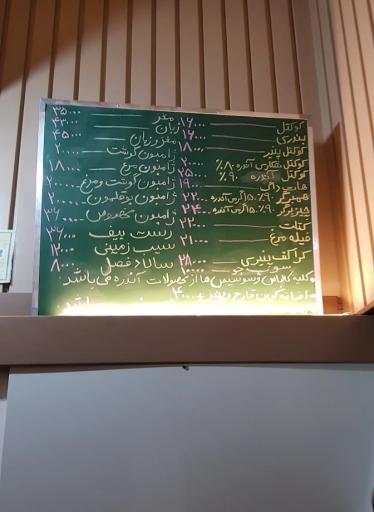 کوکتل ۱۶۰۰۰
بندری ۱۶۰۰۰
کوکتل پنیر ۱۸۰۰۰
کوکتل آندره ۹۰٪ ۲۵۰۰۰
هات داگ ۱۹۰۰۰
همبرگر ۹۰٪ ۱۵۰ گرمی آندره ۲۲۰۰۰
چیزبرگر ۹۰٪ ۱۵۰ گرمی آندره ۲۴۰۰۰
کتلت ۲۲۰۰۰
فیله مرغ ۲۱۰۰۰
کراکف پنیری ۲۸۰۰۰
مغز ۳۵۰۰۰
زبان ۴۳۰۰۰
مغز و زبان ۴۵۰۰۰
ژامبون گوشت ۲۰۰۰۰
ژامبون مرغ ۱۸۰۰۰
ژامبون گوشت و مرغ ۲۰۰۰۰
ژامبون بوقلمون ۲۰۰۰۰
ژامبون مخصوص
رست بیف ۳۶۰۰۰
سیب زمینی ۱۲۰۰۰
سالاد فصل ۸۰۰۰
کلیه کالباس و سوسیس ها از محصولات آندره می باشد